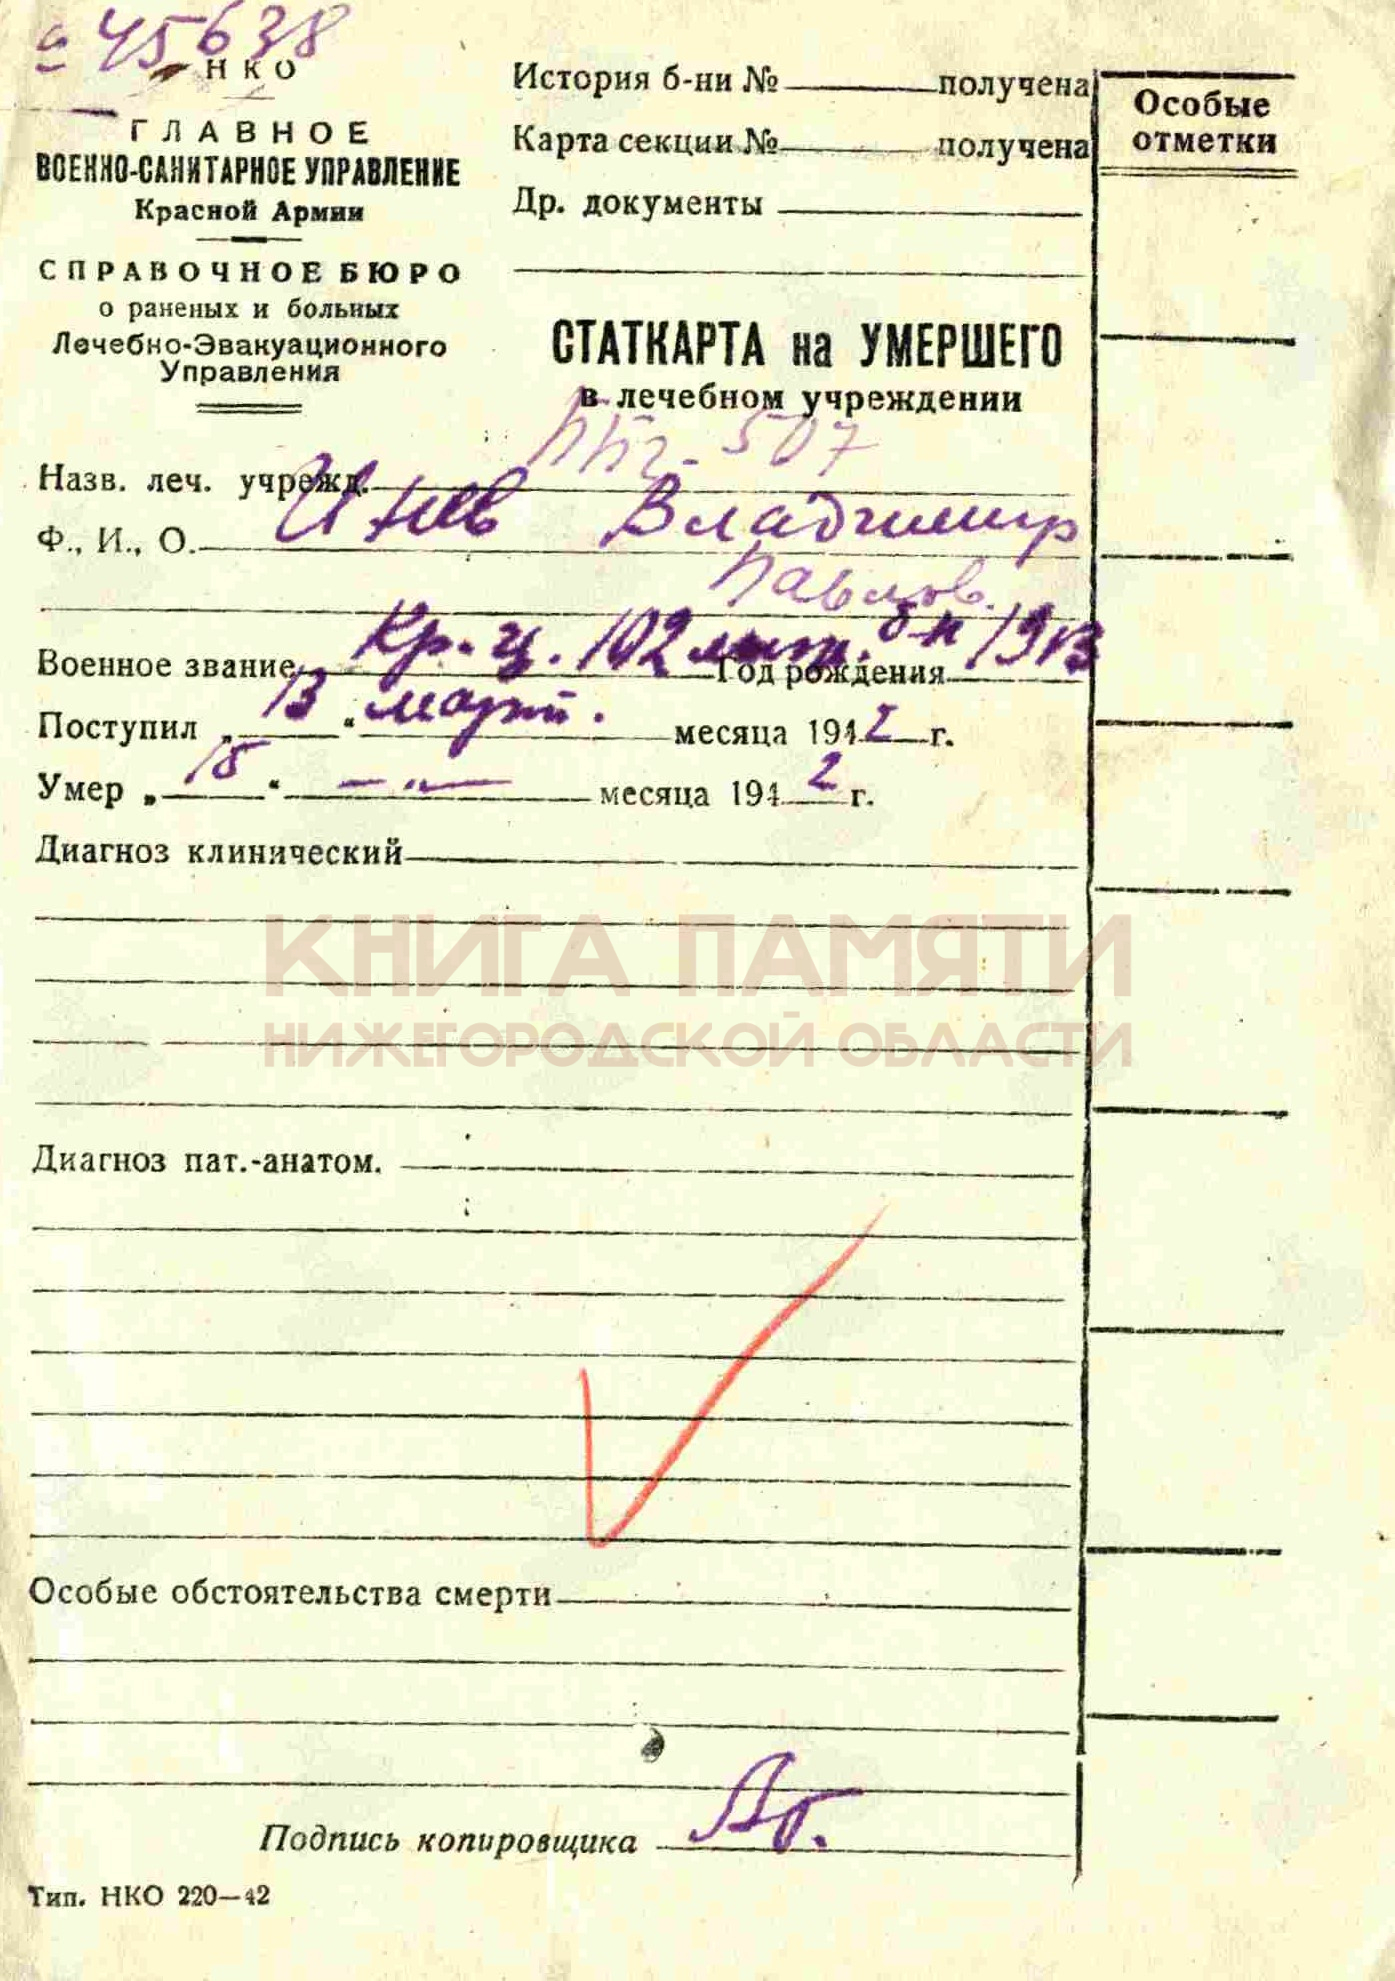 45638
НКО
ГЛАВНОЕ
ВОЕННО-САНИТАРНОЕ УПРАВЛЕНИЕ
Красной Армии
СПРАВОЧНОЕ БЮРО
о раненых и больных
Лечебно-Эвакуационного
Управления
История б-ни № получена
Карта секции № получена
Др. документы
Особые
отметки
СТАТКАРТА на УМЕРШЕГО
в лечебном учреждении
Назв. леч. учрежд. ППГ-507
Ф., И., О. Владимир
Павлов.
Военное звание Кр-ц. 102 Год рождения 1913
Поступил „13“ март. месяца 1942 г.
Умер „18“ — „ — месяца 1942 г.
Диагноз клинический
КНИГА ПАМЯТИ
НИЖЕГОРОДСКОЙ ОБЛАСТИ
Диагноз пат.-анатом.
Особые обстоятельства смерти
Подпись копировщика
Тип. НКО 220—42